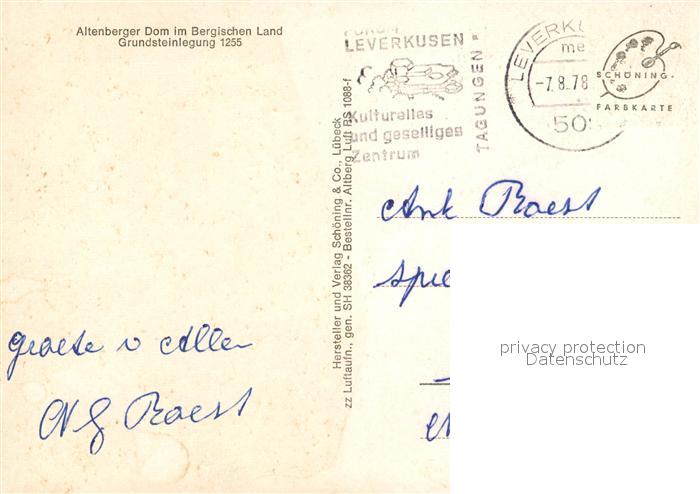 Altenberger Dom im Bergischen Land
Grundsteinlegung 1255
FORUM
LEVERKUSEN
Kulturelles
und geselliges
Zentrum
TAGUNGEN
LEVERKU
me
-7.8.78
509
SCHÖNING-
FARBKARTE
Hersteller und Verlag Schöning & Co., Lübeck
zz Luftaufn., gen. SH 38362 - Bestellnr. Altberg Luft BS 1088-f
Ank Roest
spie
groete v Allen
Roest
privacy protection
Datenschutz